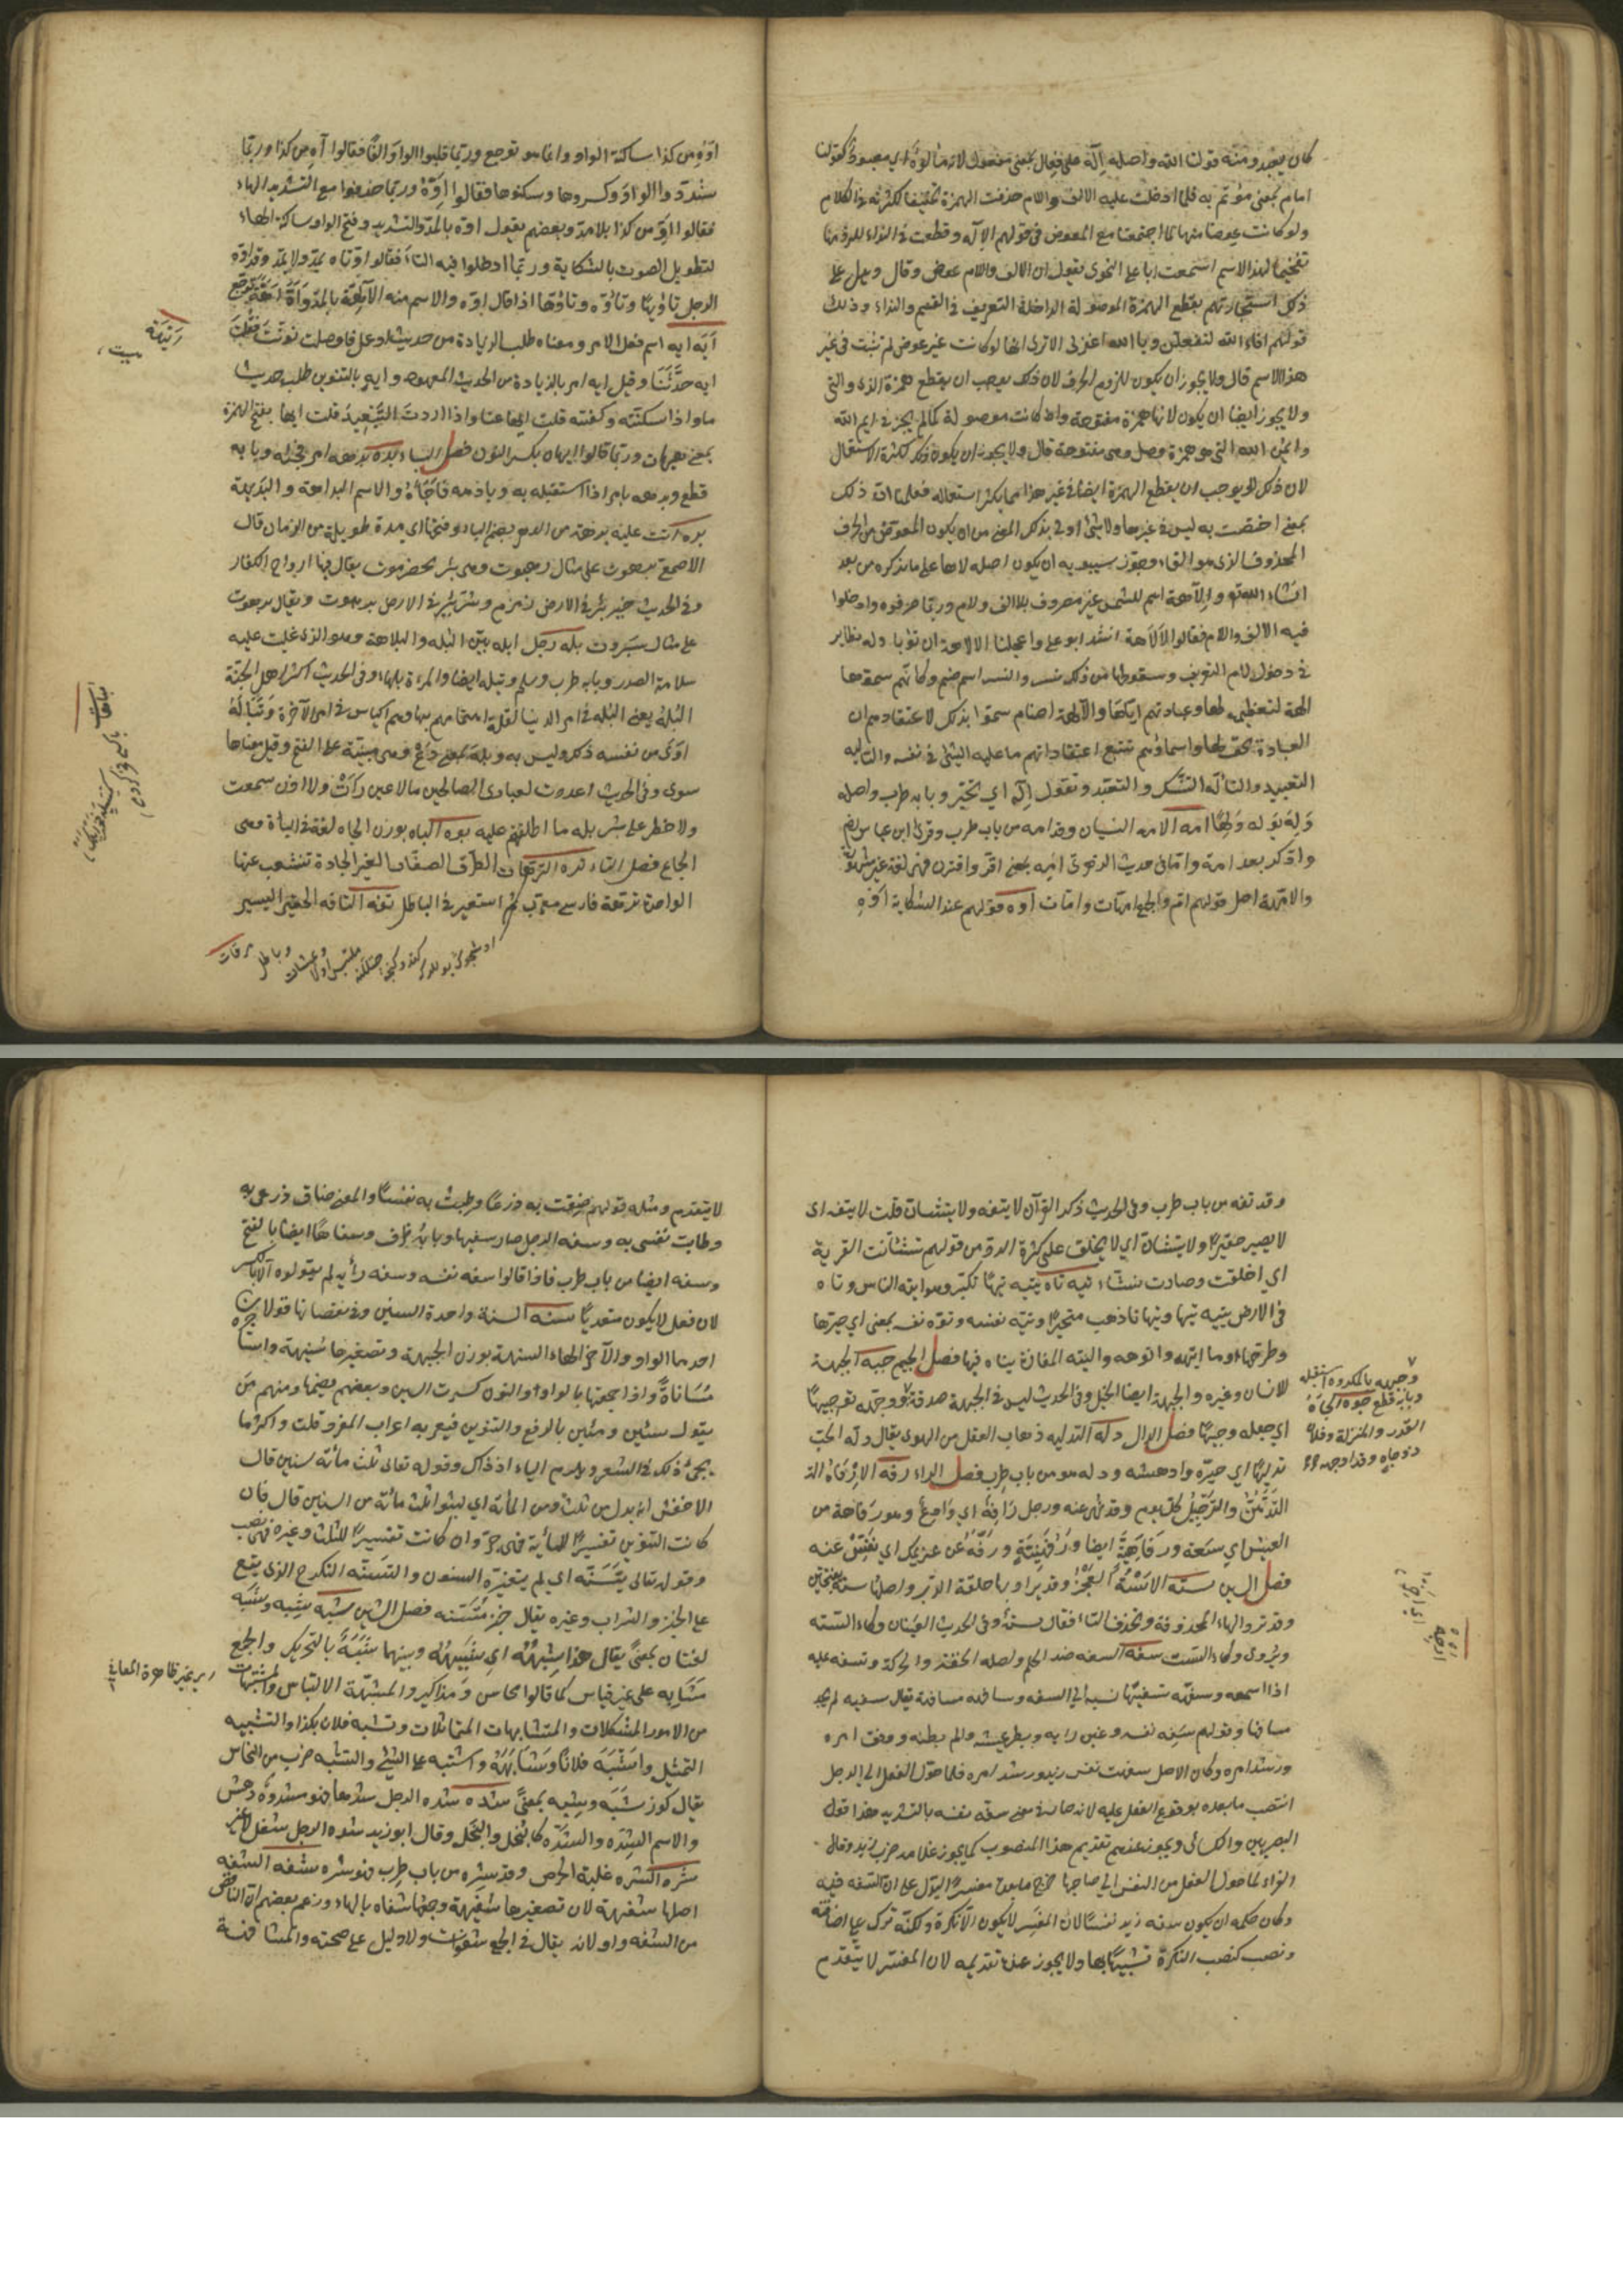 كان يعبد ومنه قولنا الله واصله إلٰه على فعال بمعنى مفعول لانه مألوه أي معبود كقولنا
امام بمعنى مؤتم به فلما ادخلت عليه الالف واللام حذفت الهمزة تخفيفا لكثرته في الكلام
ولو كانت عوضا منها لما اجتمعتا مع المعوض في قولهم الإله وقطعت في النداء للزومها
تفخيما لهذا الاسم سمعت ابا علي النحوي يقول ان الالف واللام عوض وقال ويدل على
ذلك استجازتهم بقطع الهمزة الموصولة الداخلة التعريف في القسم والنداء وذلك
قولهم افالله لتفعلن ويا الله اغفر لي الا ترى انها لو كانت غير عوض لم تثبت في غير
هذا الاسم قال ولا يجوز ان يكون للزوم الحرف لان ذلك يوجب ان يقطع همزة الذي والتي
ولا يجوز ايضا ان يكون لانها همزة مفتوحة وان كانت موصولة كما لم يجز في ايم الله
وايمن الله التي هو همزة وصل وهي مفتوحة قال ولا يجوز ان يكون ذلك لكثرة الاستعمال
لان ذلك يوجب ان يقطع الهمزة ايضا في غير هذا مما يكثر استعماله فعلمنا ان ذلك
بمعنى اختصت به ليس في غيرها ولا شيء اولى بذلك المعنى من ان يكون المعوض من الحرف
المحذوف الذي هو الفاء وجوز سيبويه ان يكون اصله لاها على ما نذكره من بعد
ان شاء الله والإلاهة اسم للشمس غير مصروف بلا الف ولام وربما صرفوه وادخلوا
فيه الالف واللام فقالوا الإلاهة انشد ابو علي واعجلنا الالاهة ان تؤبا وله نظاير
في دخول لام التعريف وسقوطها من ذلك نسر والنسر اسم صنم وكانهم سموها
الهة لتعظيمهم لها وعبادتهم اياها والآلهة اصنام سموا بذلك لاعتقادهم ان
العبادة تحق لها واسماؤهم تتبع اعتقاداتهم ما عليه الشيء في نفسه والتأليه
التعبيد والتأله التنسك والتعبد وتقول أله اي تحير وبابه طرب واصله
وله يوله ولها امه الامه النسيان وقد امه من باب طرب وقرأ ابن عباس رض
وادكر بعد امه واما في حديث الزهري امه بمعنى اقر واعترف فهي لغة غير مشهورة
والامهة اصل قولهم ام والجمع امهات وامات اوه قولهم عند الشكاية اوه
اوه من كذا ساكنة الواو وانما هو توجع وربما قلبوا الواو الفا فقالوا آه من كذا وربما
شددوا الواو وكسروها وسكنوها فقالوا اوه وربما حذفوا مع التشديد الهاء
فقالوا او من كذا بلا مد وبعضهم يقول اوه بالمد والتشديد وفتح الواو ساكنة الهاء
لتطويل الصوت بالشكاية وربما ادخلوا فيه التاء فقالوا اوتاه يمد ولا يمد وقد اوه
الرجل تأويها وتأوه وتأوها اذا قال اوه والاسم منه الآهة بالمد
ايه ايه اسم فعل الامر ومعناه طلب الزيادة من حديث او عمل فان وصلت نونت فقلت
ايه حدثنا وقيل ايه امر بالزيادة من الحديث المعهود وايه بالتنوين طلب حديث
ما واذا سكتته وكففته قلت ايها عنا واذا اردت التبعيد قلت ايها بفتح الهمزة
بمعنى هيهات وربما قالوا ايهان بكسر النون فصل الباء بده بدهه امر فجئه وبابه
قطع وبدهه بامر اذا استقبله به وبادهه فاجأه والاسم البداهة والبديهة
بره اتت عليه برهة من الدهر بضم الباء وفتحها اي مدة طويلة من الزمان قال
الاصمعي برهوت على مثال رهبوت وهي بئر بحضرموت يقال فيها ارواح الكفار
وفي الحديث خير بئر في الارض زمزم وشر بئر في الارض برهوت ويقال برهوت
على مثال سبروت بله رجل ابله بين البله والبلاهة وهو الذي غلبت عليه
سلامة الصدر وبابه طرب وسلم وتبله ايضا والمرءة بلهاء وفي الحديث اكثر اهل الجنة
البله يعني البله في امر الدنيا لقلة اهتمامهم بها وهم اكياس في امر الآخرة وتباله
ارى من نفسه ذلك وليس به وبله بمعنى دع وهي مبنية على الفتح وقيل معناها
سوى وفي الحديث اعددت لعبادي الصالحين ما لا عين رأت ولا اذن سمعت
ولا خطر على بشر بله ما اطلعتهم عليه بوه الباه بوزن الجاه لغة في الباءة وهي
الجماع فصل التاء تره الترهات الطرق الصغار الغير الجادة تتشعب عنها
الواحدة ترهة فارسي معرب ثم استعير في الباطل تفه التافه الحقير اليسير
وقد تفه من باب طرب وفي الحديث ذكر القرآن لا يتفه ولا يتشان قلت لا يتفه اي
لا يصير حقيرا ولا يتشان اي لا يخلق على كثرة الرد من قولهم تشانت القربة
اي اخلقت وصارت شنا تيه تاه يتيه تيها تكبر وهو اتيه الناس وتاه
في الارض يتيه تيها وتيهانا ذهب متحيرا وتيه نفسه وتوه نفسه بمعنى اي حيرها
وطرحها وما اتيهه واتوهه والتيه المفازة يتاه فيها فصل الجيم جبه الجبهة
للانسان وغيره والجبهة ايضا الخيل وفي الحديث ليس في الجبهة صدقة ووجهه توجيها
اي جعله وجيها فصل الدال دله التدليه ذهاب العقل من الهوى يقال دلهه الحب
تدليها اي حيره وادهشه ودله هو من باب طرب فصل الراء رفه الارفاه
التدهن والترجيل كل يوم وقد نهي عنه ورجل رافه اي وادع وهو رفاهة من
العيش اي سعة ورفاهية ايضا ورفهنية ورفه عن غريمك اي نفس عنه
فصل السين سته الاست العجز وقد يراد بها حلقة الدبر واصلها سته بفتحتين
وقد ترد الهاء المحذوفة وتحذف التاء فقال سه وفي الحديث العينان وكاء السه
ويروى وكاء الست سفه السفه ضد الحلم واصله الخفة والحركة وتسفه عليه
اذا اسمعه وسفهه تسفيها نسبه الى السفه وسافهه مسافهة يقال سفيه لم يجد
مسافها وقولهم سفه نفسه وغبن رأيه وبطر عيشه والم بطنه ووفق امره
ورشد امره وكان الاصل سفهت نفس زيد ورشد امره فلما حول الفعل الى الرجل
انتصب ما بعده بوقوع الفعل عليه لانه صار في معنى سفه نفسه بالتشديد هذا قول
البصريين والكسائي ويجوز عندهم تقديم هذا المنصوب كما يجوز غلامه ضرب زيد وقال
الفراء لما حول الفعل من النفس الى صاحبها خرج ما بعده مفسرا ليدل على ان السفه فيه
وكان حكمه ان يكون سفه زيد نفسا لان المفسر لا يكون الا نكرة ولكنه ترك على اضافته
ونصب كنصب النكرة تشبيها بها ولا يجوز عنده تقديمه لان المفسر لا يتقدم
وجبهه بالمكروه استقبله
وبابه قطع جوه الجاه
القدر والمنزلة وفلان
ذو جاه وقد اوجهه
لا يتقدم ومثله قولهم ضقت به ذرعا وطبت به نفسا والمعنى ضاق ذرعي به
وطابت نفسي به وسفه الرجل صار سفيها وبابه ظرف وسفاها ايضا بالفتح
وسفه ايضا من باب طرب فاذا قالوا سفه نفسه وسفه رأيه لم يقولوه الا بالكسر
لان فعل لا يكون متعديا سنه السنة واحدة السنين وفي نقصانها قولان
احدهما الواو والآخر الهاء السنهة بوزن الجبهة وتصغيرها سنيهة
مساناة واذا جمعتها بالواو والنون كسرت السين وبعضهم يضمها ومنهم من
يقول سنين ومئين بالرفع والتنوين فيعربه اعراب المفرد قلت واكثر ما
يجيء ذلك في الشعر ويلزم الياء اذ ذاك وقوله تعالى ثلث مائة سنين قال
الاخفش انه بدل من ثلث ومن المائة اي لبثوا ثلث مائة من السنين قال فان
كانت التنوين تفسيرا للمائة فهي جر وان كانت تفسيرا للثلث وغيره فهي نصب
وقوله تعالى يتسنه اي لم يتغيره السنون والتسنه التكرج الذي يقع
على الخبز والشراب وغيره يقال خبز متسنه فصل الشين شبه شبه وشبه
لغتان بمعنى يقال هذا شبهه اي شبيهه وبينهما شبه بالتحريك والجمع
مشابه على غير قياس كما قالوا محاسن ومذاكير والشبهة الالتباس والمشتبهات
من الامور المشكلات والمتشابهات المتماثلات وتشبه فلان بكذا والتشبيه
التمثيل واشبه فلانا وشابهه واشتبه على الشيء والشبه ضرب من النحاس
يقال كوز شبه وشبه بمعنى شده شده الرجل شدها فهو مشدوه دهش
والاسم الشده والشده كالبخل والبخل وقال ابو زيد شده الرجل شغل لا غير
شره الشره غلبة الحرص وقد شره من باب طرب فهو شره شفه الشفة
اصلها شفهة لان تصغيرها شفيهة وجمعها شفاه بالهاء وزعم بعضهم ان الناقص
من الشفة واو لانه يقال في الجمع شفوات ولا دليل على صحته والمشافهة